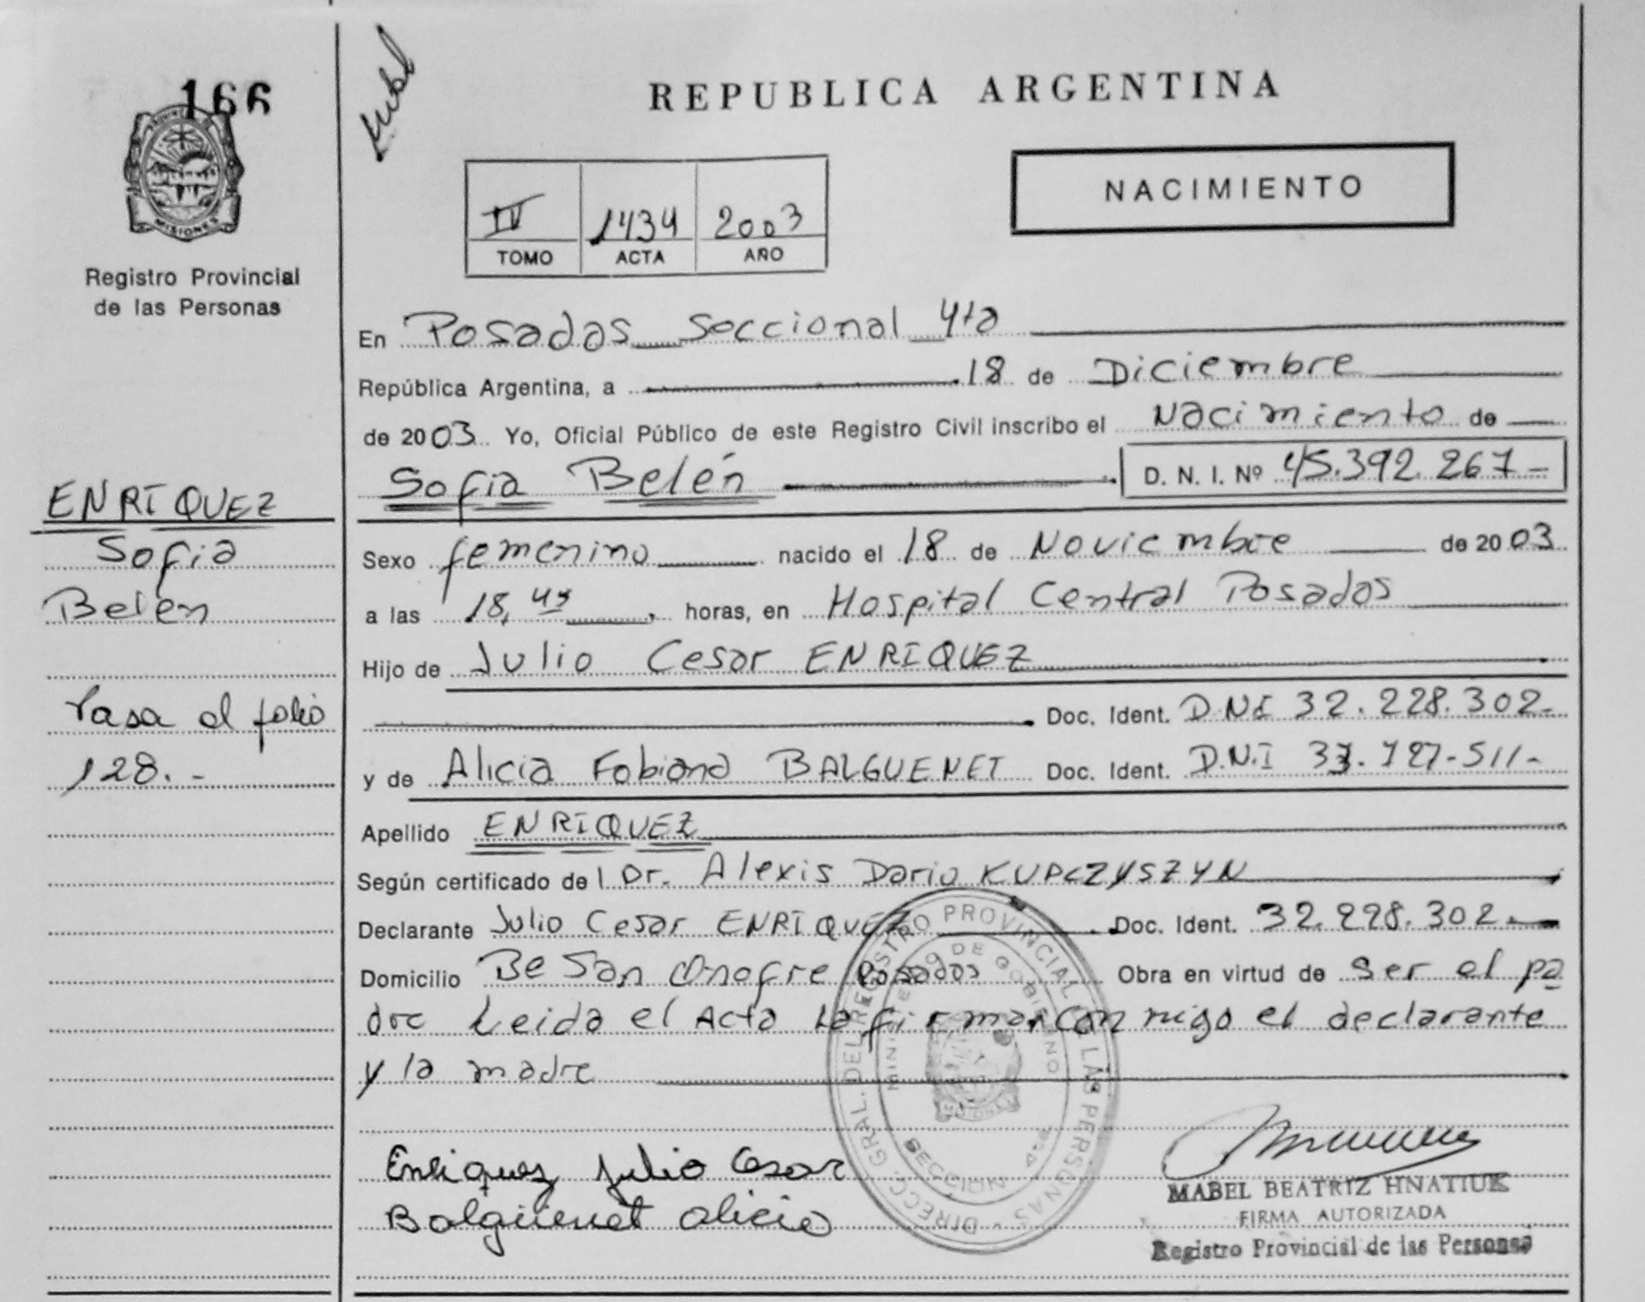 166
MISIONES
Registro Provincial
de las Personas
ENRIQUEZ
Sofia
Belén
Pasa al folio
128.-
REPUBLICA ARGENTINA
NACIMIENTO
IV 1434 2003
TOMO ACTA AÑO
En Posadas Seccional 4ta
República Argentina, a 18 de Diciembre
de 2003 Yo, Oficial Público de este Registro Civil inscribo el Nacimiento de
Sofia Belén D. N. I. Nº 45.392.267-
Sexo femenino nacido el 18 de Noviembre de 2003
a las 18,45 horas, en Hospital Central Posadas
Hijo de Julio Cesar ENRIQUEZ
Doc. Ident. D.N.I 32.228.302-
y de Alicia Fabiana BALGUENET Doc. Ident. D.N.I 511-
Apellido ENRIQUEZ
Según certificado del Dr. Alexis Dario KUPCZYSZYN
Declarante Julio Cesar ENRIQUEZ Doc. Ident. 32.228.302-
Domicilio Be San Onofre Posadas Obra en virtud de ser el pa
dre Leida el Acta la firman conmigo el declarante
y la madre
Enriquez Julio Cesar
Balguenet Alicia
DIRECC. GRAL. DEL REGISTRO PROVINCIAL DE LAS PERSONAS
MINISTERIO DE GOBIERNO
SECCION 4ta
MABEL BEATRIZ HNATIUK
FIRMA AUTORIZADA
Registro Provincial de las Personas